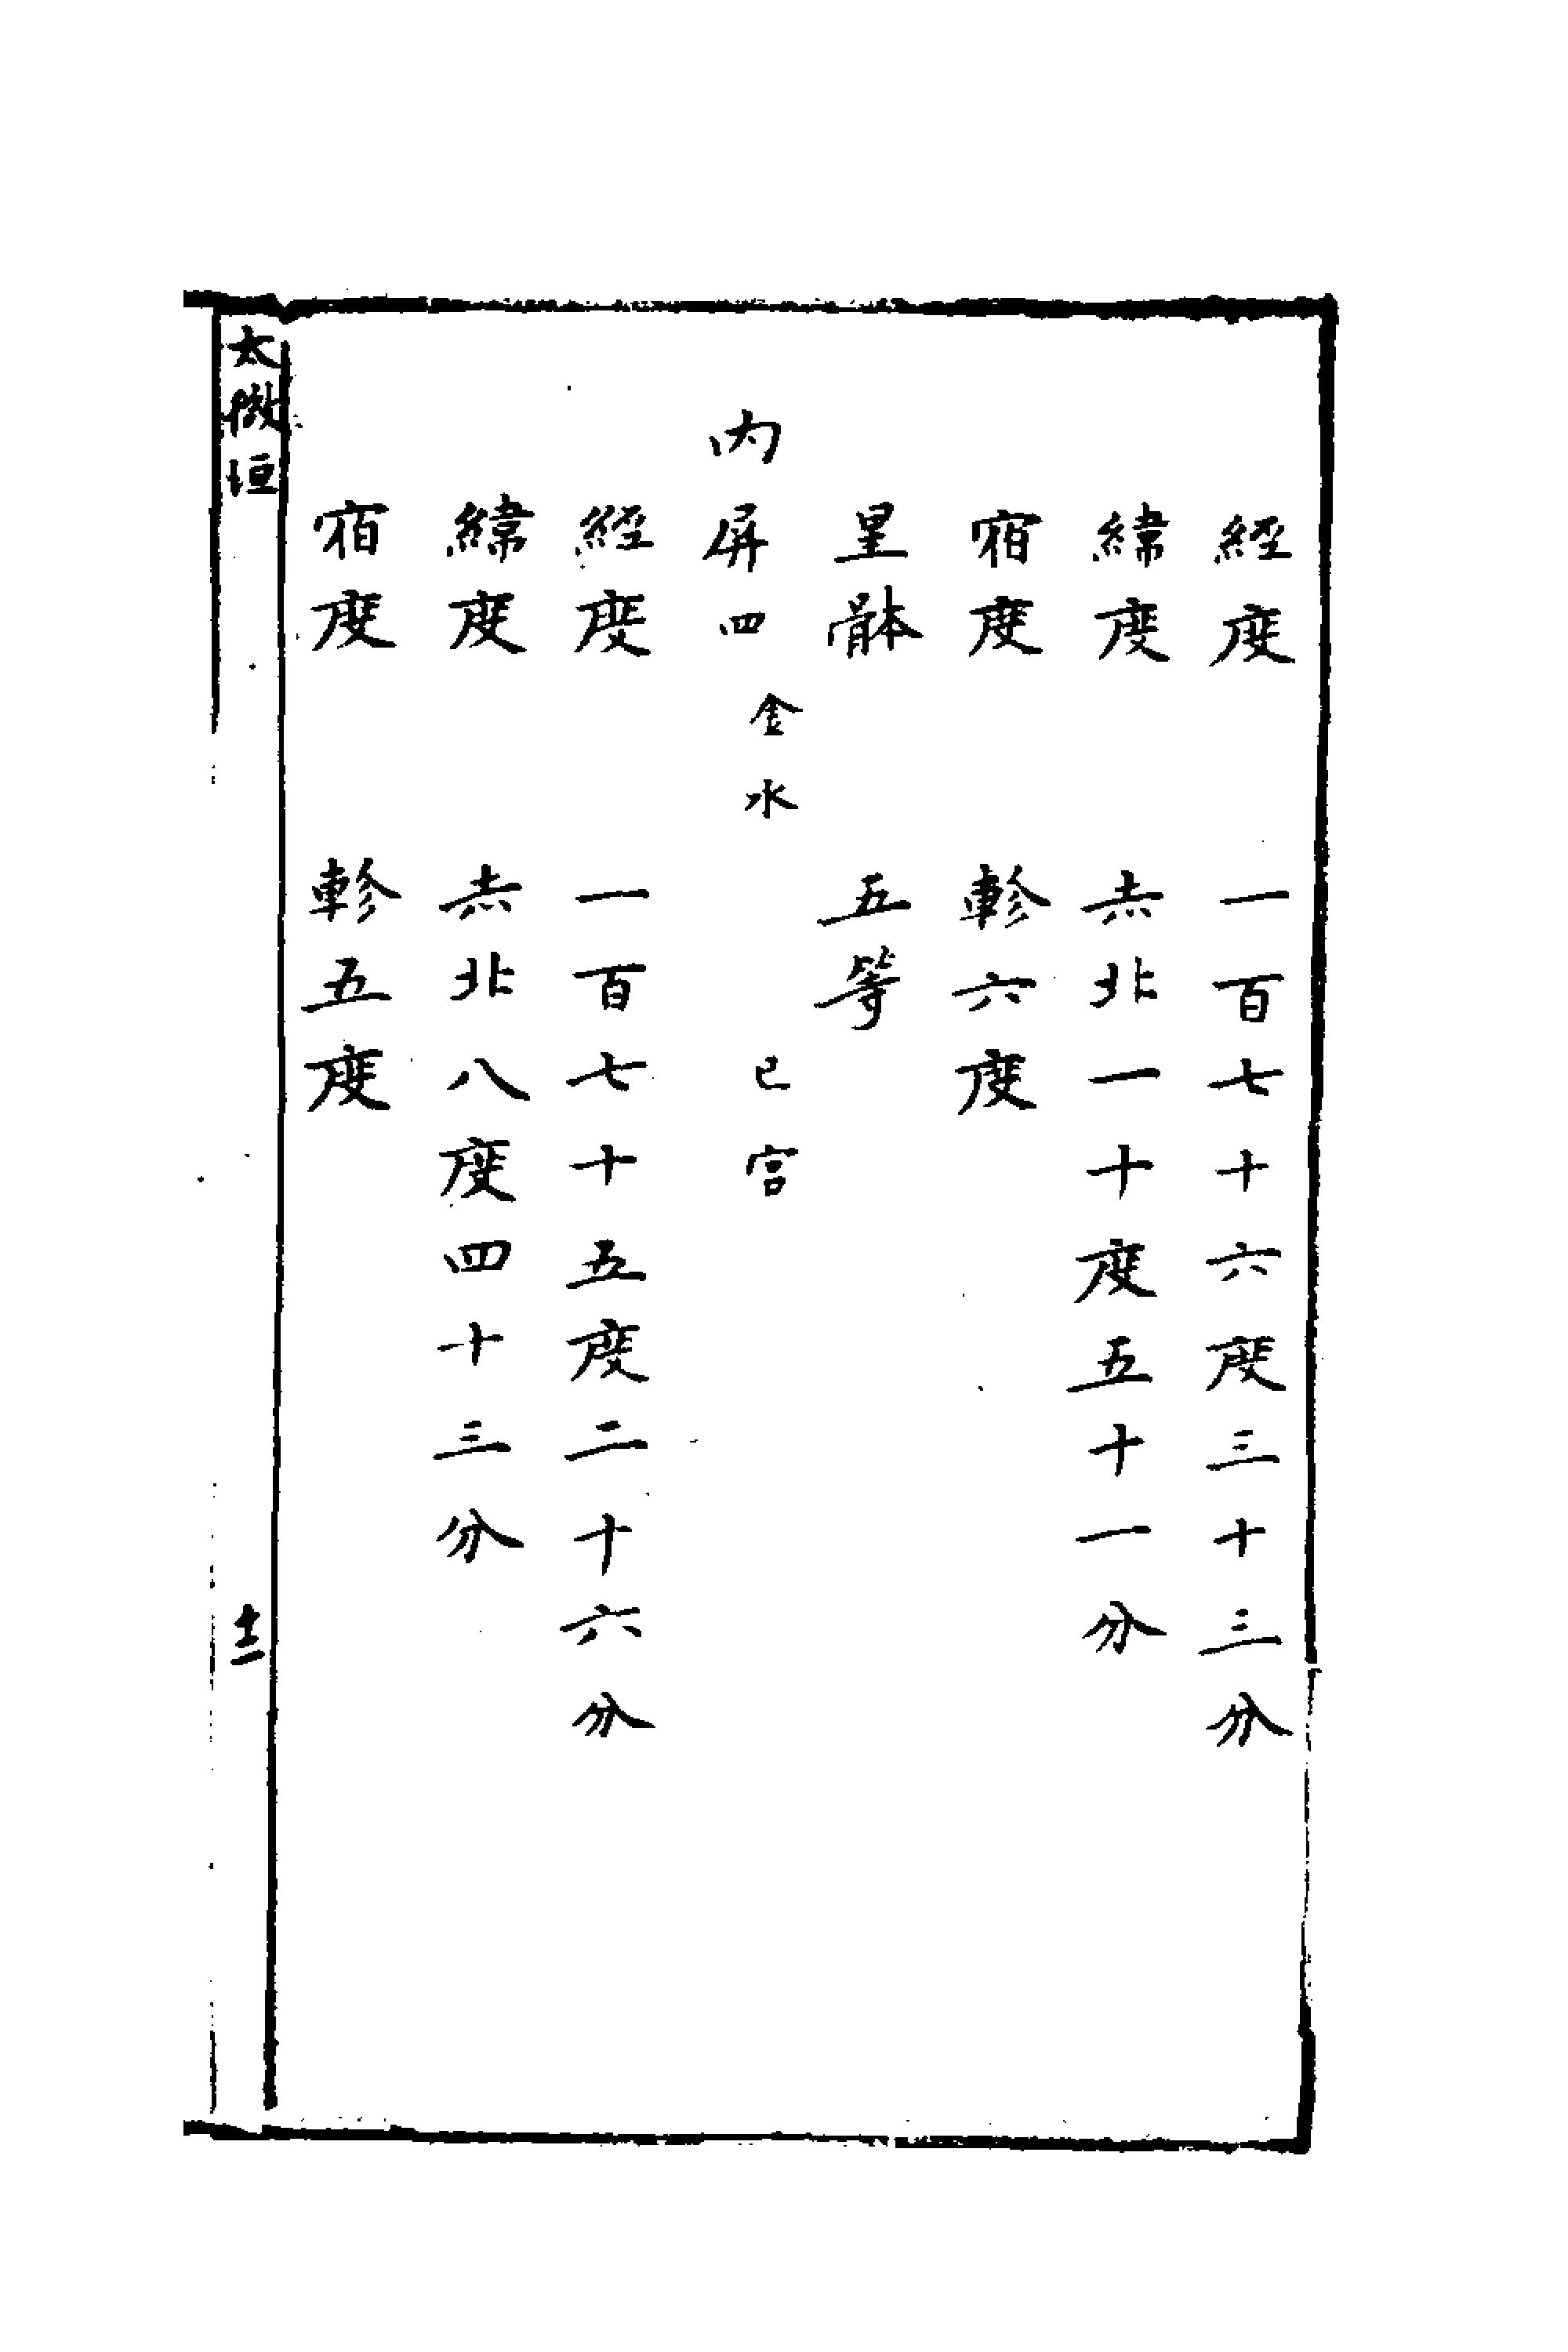 經度　一百七十六度三十三分
緯度　赤北一十度五十一分
宿度　軫六度
星體　五等
內屏四　金水　巳宮
經度　一百七十五度二十六分
緯度　赤北八度四十三分
宿度　軫五度
太微垣　十二